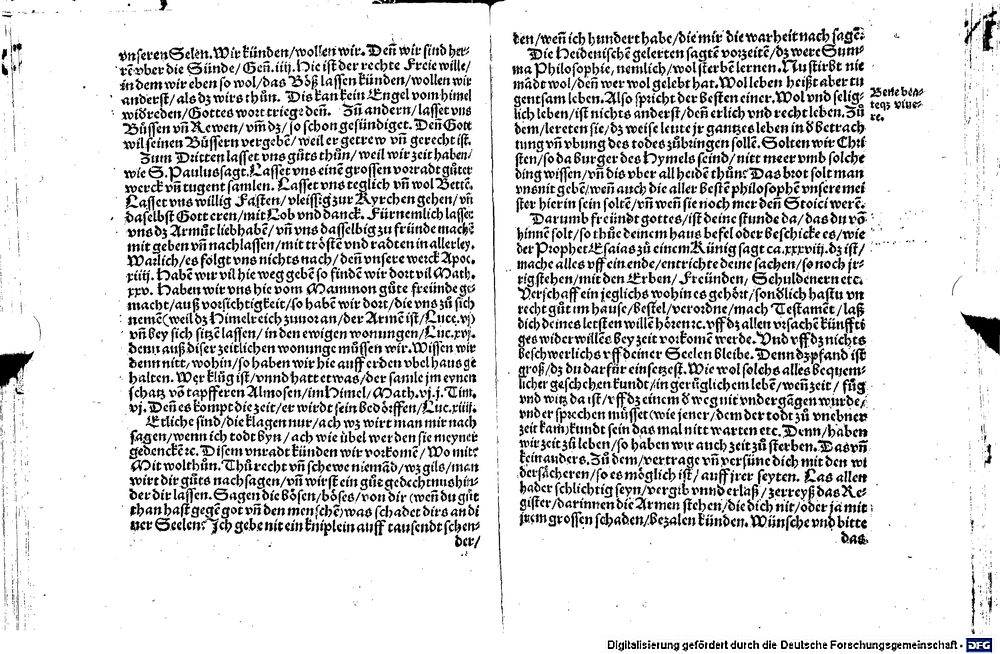 vnseren Selen. Wir künden/ wollen wir. Deñ wir sind her-
rē vber die Sünde/ Geñ. iiij. Hie ist der rechte Freie wille/
in dem wir eben so wol/ das Böß lassen künden/ wollen wir
anderst/ als dz wirs thůn. Dis kan kein Engel vom himel
widreden/ Gottes wort trieg: deñ. Zů andern/ lasset vns
Büssen vñ Rewen/ vm̄ dz/ so schon gesündiget. Deñ Gott
wil seinen Büssern vergebē/ weil er getrew vñ gerecht ist.
Zum Dritten lasset vns gůts thůn/ weil wir zeit haben/
wie S. Paulus sagt. Lasset vns einē grossen vorradt gůter
werck vñ tugent samlen. Lasset vns teglich vñ wol Bettē.
Lasset vns willig Fasten/ vleissig zur Kyrchen gehen/ vñ
daselbst Gott eren/ mit Lob vnd danck. Fürnemlich lasset
vns dz Armůt liebhabē/ vñ vns dasselbig zu fründe machē
mit geben vñ nachlassen/ mit tröstē vnd radten in allerley.
Warlich/ es folgt vns nichts nach/ deñ vnsere werck Apoc.
xiiij. Habē wir vil hie weg gebē so findē wir dort vil Math.
xxv. Haben wir vns hie vom Mammon gůte freünde ge-
macht/ auß vorsichtigkeit/ so habē wir dort/ die vns zů sich
nemē (weil dz Himelreich zuuor an/ der Armē ist/ Luce. vj)
vñ bey sich sitzē lassen/ in den ewigen wonungen/ Luc. xvj.
denn auß diser zeitlichen wonunge müssen wir. Wissen wir
denn nitt/ wohin/ so haben wir hie auff erden vbel hauß ge
halten. Wer klůg ist/ vnnd hatt etwas/ der samle jm eynen
schatz vō tapfferen Almosen/ im Himel/ Math. vj. j. Tim.
vj. Deñ es kompt die zeit/ er wirdt sein bedörffen/ Luc. xiiij.
Etliche sind/ die klagen nur/ ach wz wirt man mir nach
sagen/ wenn ich todt byn/ ach wie übel werden sie meyner
gedenckē ꝛc. Disem vnradt künden wir vorkomē/ Wo mit?
Mit wolthůn. Thů recht vñ schewe niemād/ wz gils/ man
wirt dir gůts nachsagen/ vñ wirst ein gůt gedechtnus hin-
der dir lassen. Sagen die bösen/ böses/ von dir (weñ du gůt
than hast gegē got vñ den menschē) was schadet dirs an di
ner Seelen? Ich gebe nit ein kniplein auff tausendt schen-
der/
den/ weñ ich hundert habe/ die mir die warheit nach sagē.
Die Heidenischē gelerten sagtē vorzeitē/ dz were Sum-
ma Philosophie, nemlich/ wol sterbē lernen. Nu stirbt nie
mādt wol/ deñ wer wol gelebt hat. Wol leben heißt aber tu
gentsam leben. Also spricht der besten einer. Wol vnd selig-
lich leben/ ist nichts anderst/ deñ erlich vnd recht leben. Zů
dem/ lereten sie/ dz weise leute jr gantzes leben in d betrach
tung vñ vbung des todes zůbringen sollē. Solten wir Chri
sten/ so da burger des Hymels seind/ nitt meer vmb solche
ding wissen/ vñ dis vber all heidē thůn? Das brot solt man
vns nit gebē/ weñ auch die aller bestē philosophē vnsere mei
ster hierin sein soltē/ vñ weñ sie noch mer deñ Stoici werē.
Darumb freündt gottes/ ist deine stunde da/ das du vō
hinnē solt/ so thůe deinem haus befel oder beschicke es/ wie
der Prophet Esaias zů einem Künig sagt ca. xxxviij. dz ist/
mache alles vff ein ende/ entrichte deine sachen/ so noch jr-
rig stehen/ mit den Erben/ Freünden/ Schuldenern etc.
Verschaff ein jeglichs wohin es gehört/ sondlich hastu vn
recht gůt im hause/ bestel/ verordne/ mach Testamēt/ laß
dich deines letsten willē hören ꝛc. vff dz allen vrsachē künffti
ges widerwillēs bey zeit vorkomē werde. Vnd vff dz nichts
beschwerlichs vff deiner Seelen bleibe. Denn dz pfand ist
groß/ dz du darfür einsetzest. Wie wol solchs alles bequem-
licher geschehen kundt/ in gerüglichem lebē/ weñ zeit/ fůg
vnd witz da ist/ vff dz einem d weg nit vndergāgen wurde/
vnder sprechen müsset (wie jener/ dem der todt zů vnebner
zeit kam/ kundt sein das mal nitt warten etc. Denn/ haben
wir zeit zů leben/ so haben wir auch zeit zů sterben. Das vñ
kein anders. Zů dem/ vertrage vñ versüne dich mit den wi
dersächeren/ so es möglich ist/ auff jrer seyten. Las allen
hader schlichtig seyn/ vergib vnnd erlaß/ zerreyß das Re-
gister/ darinnen die Armen stehen/ die dich nit/ oder ja mit
jrem grossen schaden/ bezalen künden. Wünsche vnd bitte
das
Bene bea-
teqȝ viue-
re.
Digitalisierung gefördert durch die Deutsche Forschungsgemeinschaft - DFG